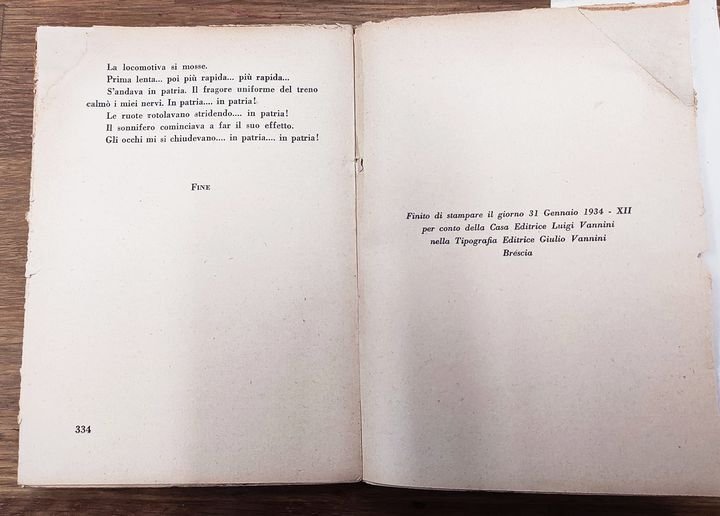 La locomotiva si mosse.
Prima lenta... poi più rapida... più rapida...
S'andava in patria. Il fragore uniforme del treno
calmò i miei nervi. In patria.... in patria!
Le ruote rotolavano stridendo.... in patria!
Il sonnifero cominciava a far il suo effetto.
Gli occhi mi si chiudevano.... in patria.... in patria!
Fine
334
Finito di stampare il giorno 31 Gennaio 1934 - XII
per conto della Casa Editrice Luigi Vannini
nella Tipografia Editrice Giulio Vannini
Brescia